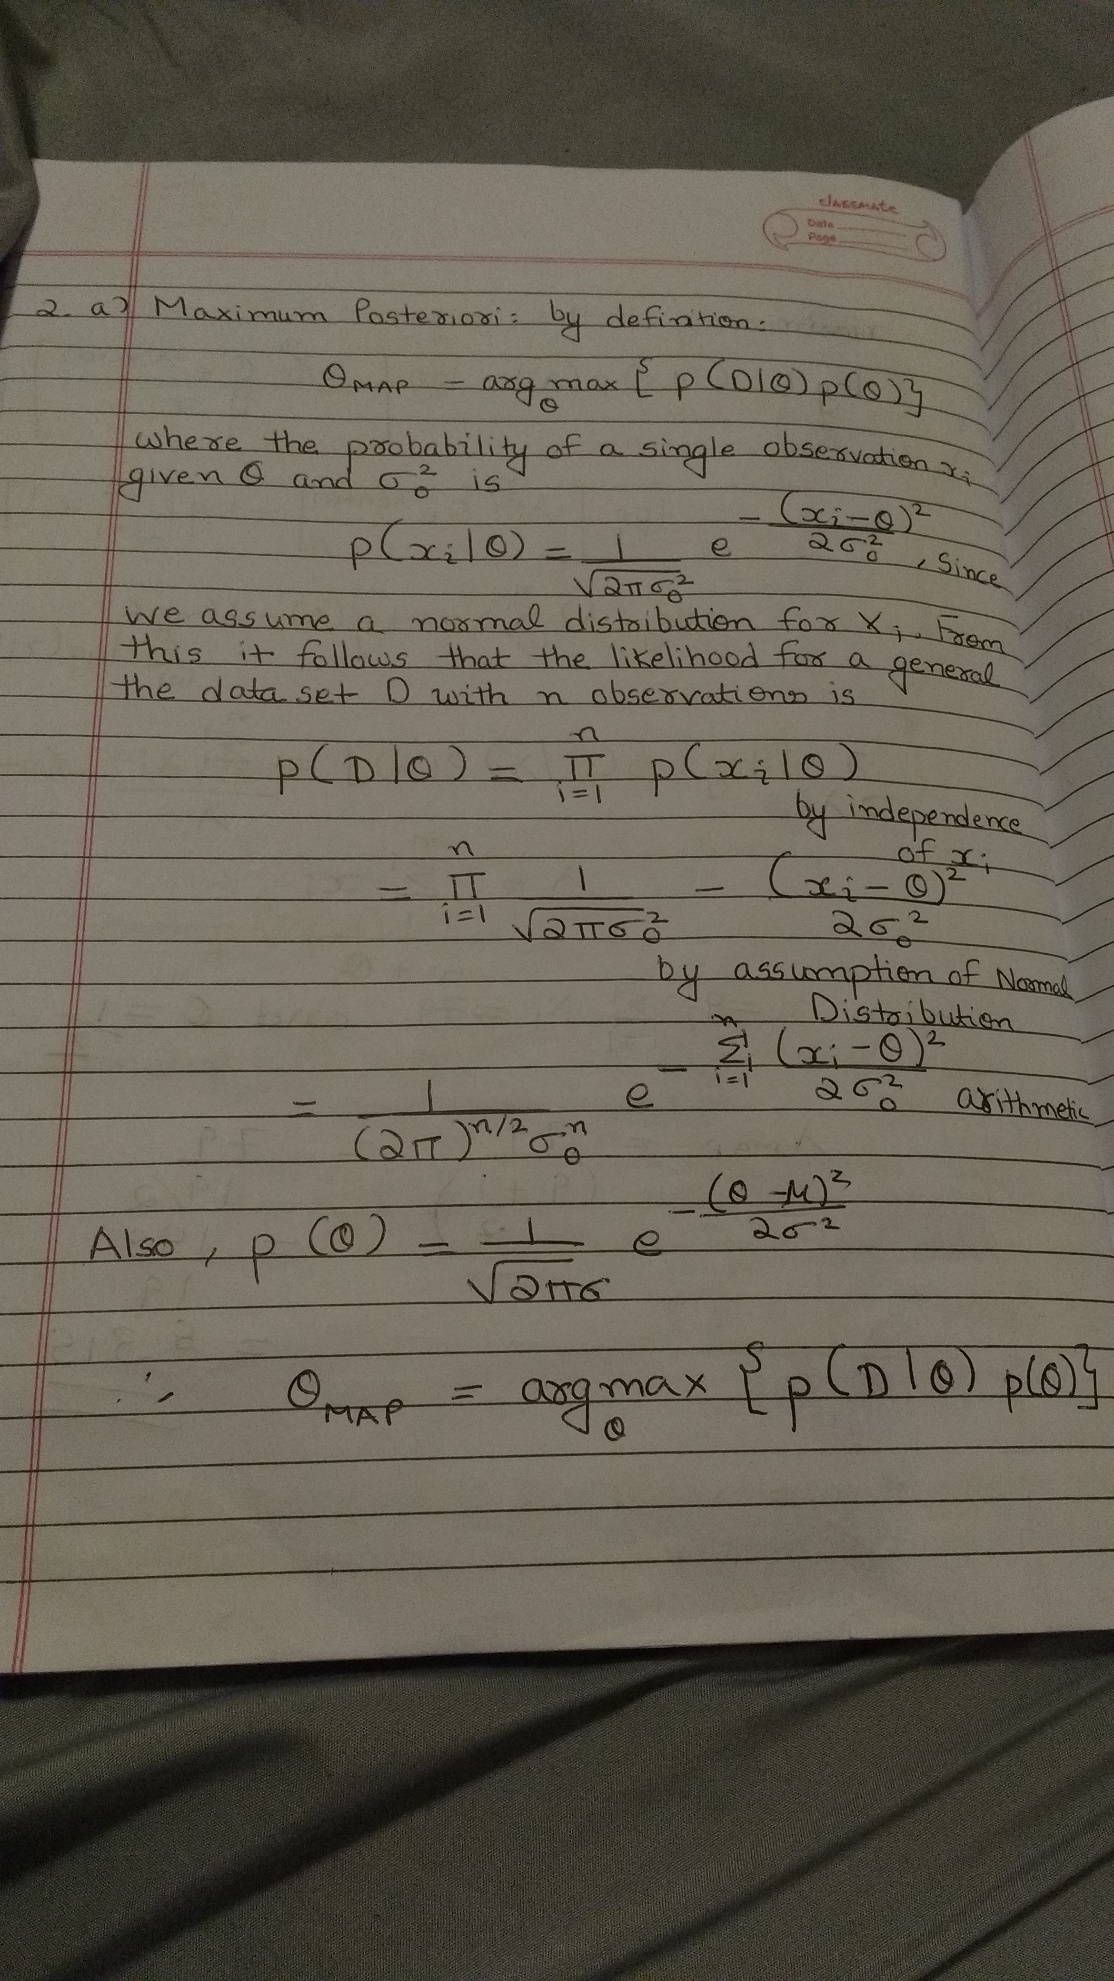 classmate
Date
Page
2. a) Maximum Posteriori: by defintion:
θ_MAP = arg max_θ { p(D|θ) p(θ)}
where the probability of a single observation x_i
given θ and σ_0^2 is
p(x_i|θ) = 1/√(2πσ_0^2) e^{-(x_i-θ)^2/2σ_0^2}, Since
we assume a normal distribution for X_i. From
this it follows that the likelihood for a general
the data set D with n observations is
p(D|θ) = ∏_{i=1}^{n} p(x_i|θ)
by independence
of x_i
= ∏_{i=1}^{n} 1/√(2πσ_0^2) - (x_i-θ)^2/2σ_0^2
by assumption of Normal
Distribution
= 1/((2π)^{n/2} σ_0^n) e^{-∑_{i=1}^{n} (x_i-θ)^2/2σ_0^2} arithmetic
Also, p(θ) = 1/√(2πσ) e^{-(θ-μ)^2/2σ^2}
∴ θ_MAP = argmax_θ { p(D|θ) p(θ)}